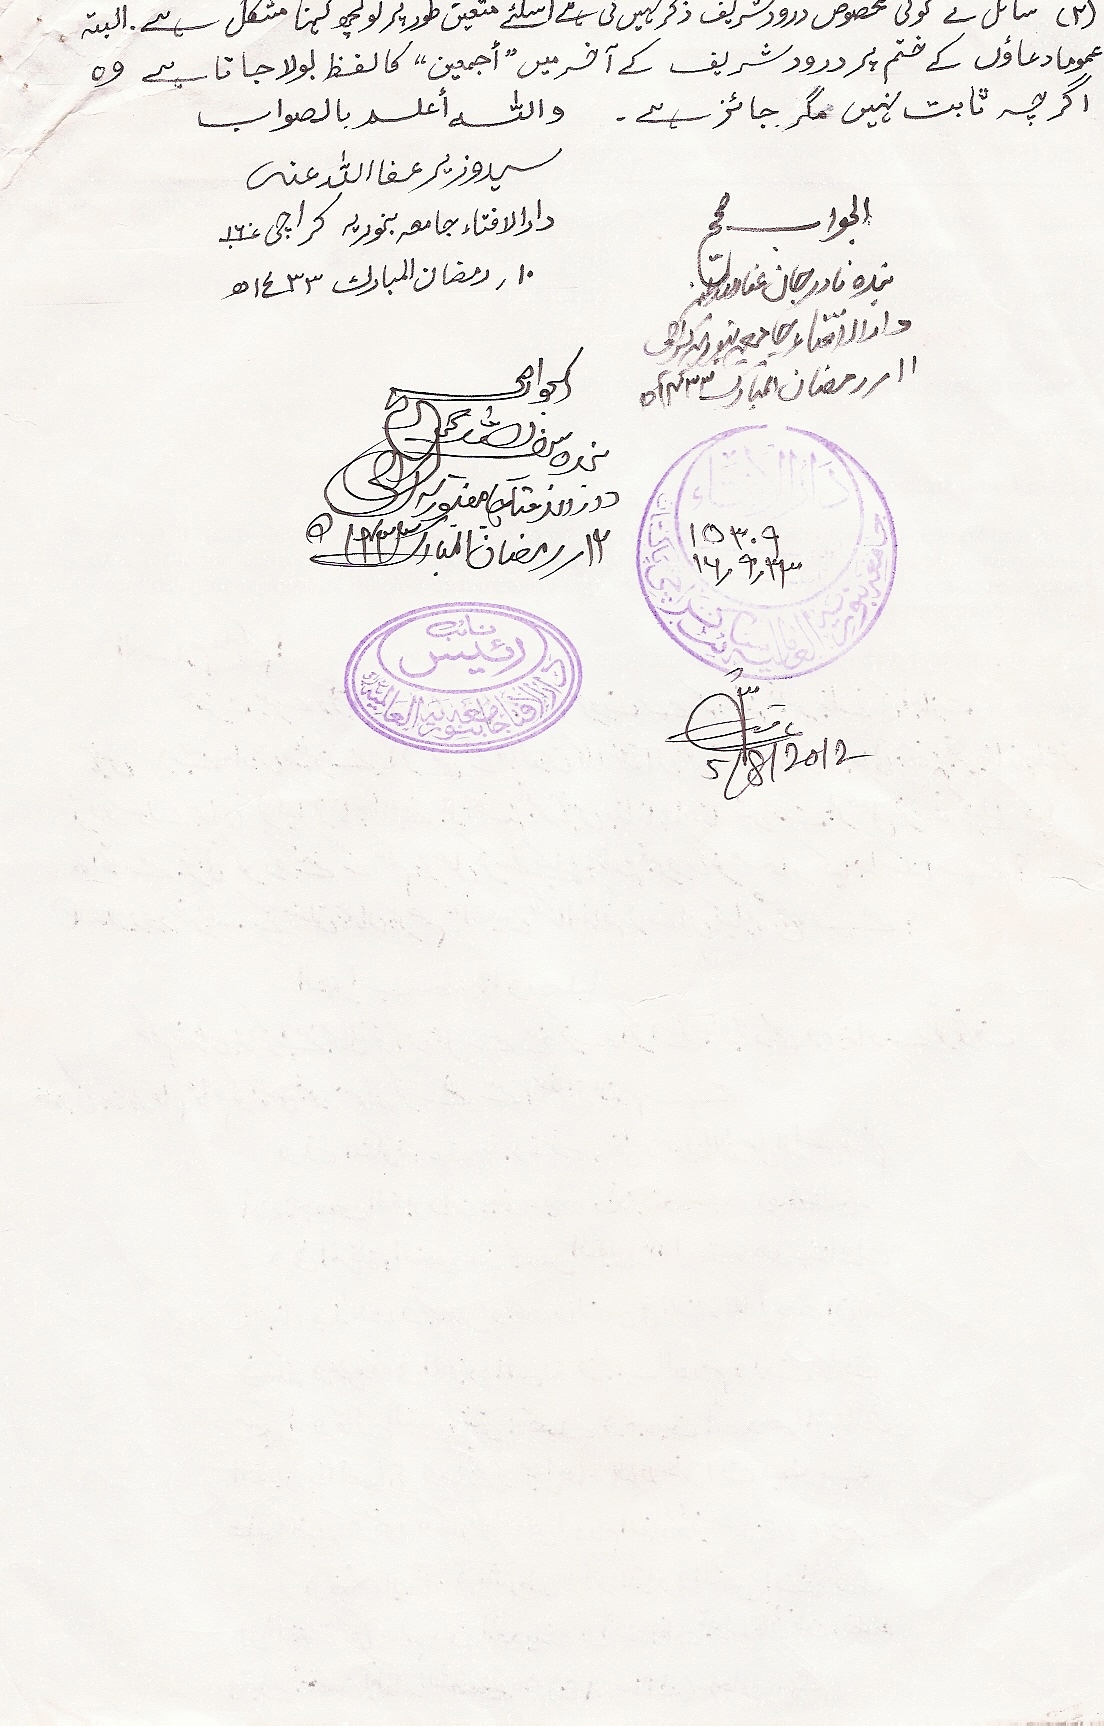 (۳) سائل نے کوئی مخصوص درود شریف ذکر نہیں کی ہے اسلئے متعین طور پر تو کچھ کہنا مشکل ہے۔ البتہ
عموما دعاؤں کے ختم پر درود شریف کے آخر میں ”أجمعین“ کا لفظ بولا جاتا ہے وہ
اگرچہ ثابت نہیں مگر جائز ہے۔ واللہ أعلم بالصواب
سید وزیر عفا اللہ عنہ
دار الافتاء جامعہ بنوریہ کراچی ۱۶
۱۰ رمضان المبارک ۱۴۳۳ھ
الجواب صحیح
بندہ نادر جان عفا اللہ عنہ
دار الافتاء جامعہ بنوریہ کراچی
۱۱ رمضان المبارک ۱۴۳۳ھ
الجواب صحیح
بندہ
دار الافتاء جامعہ بنوریہ کراچی
۱۲ رمضان المبارک ۱۴۳۳ھ
دار الافتاء
جامعہ بنوریہ العالمیہ سائٹ کراچی پاکستان
۱۵۳۰۹
۱۶٫۹٫۳۳
نائب
رئیس
دار الافتاء جامعہ بنوریہ العالمیہ
5/8/2012